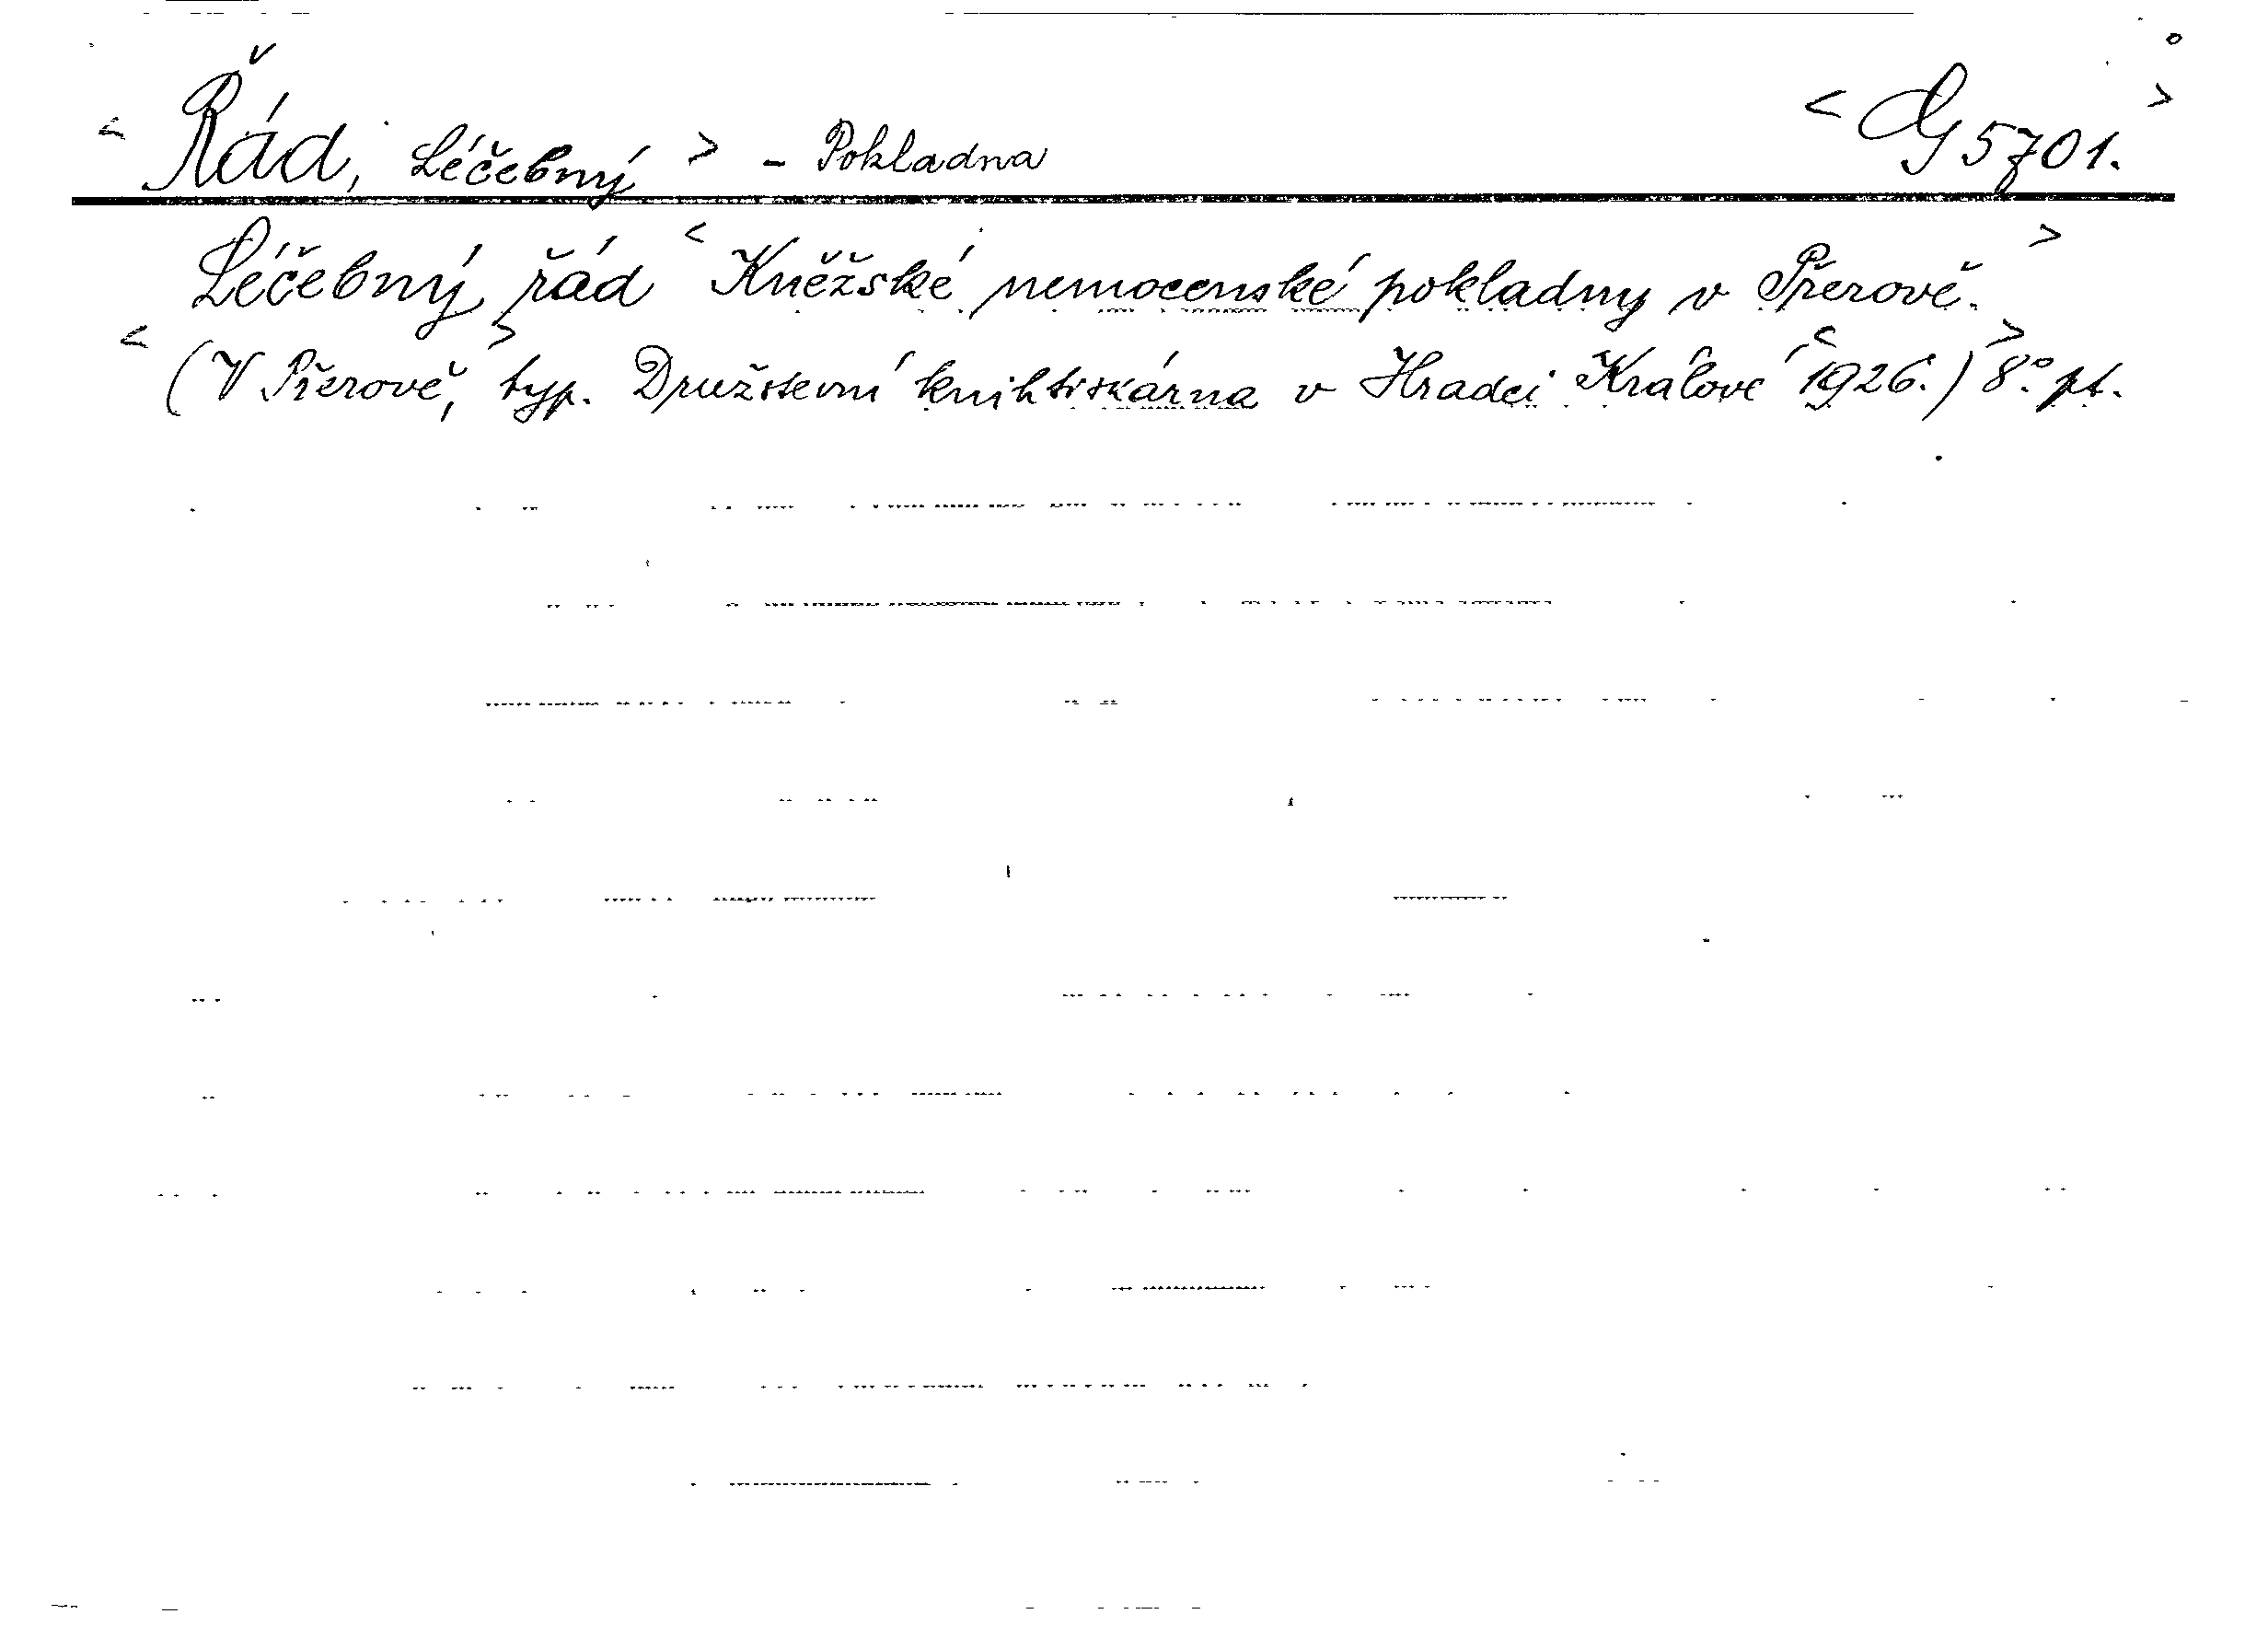 < Řád, Léčebný > - Pokladna < G 5701. >
Léčebný řád < Kněžské nemocenské pokladny v Přerově. >
< (V Přerově, > typ. Družstevní knihtiskárna v Hradci Králové < 1926.) > 8° pt.